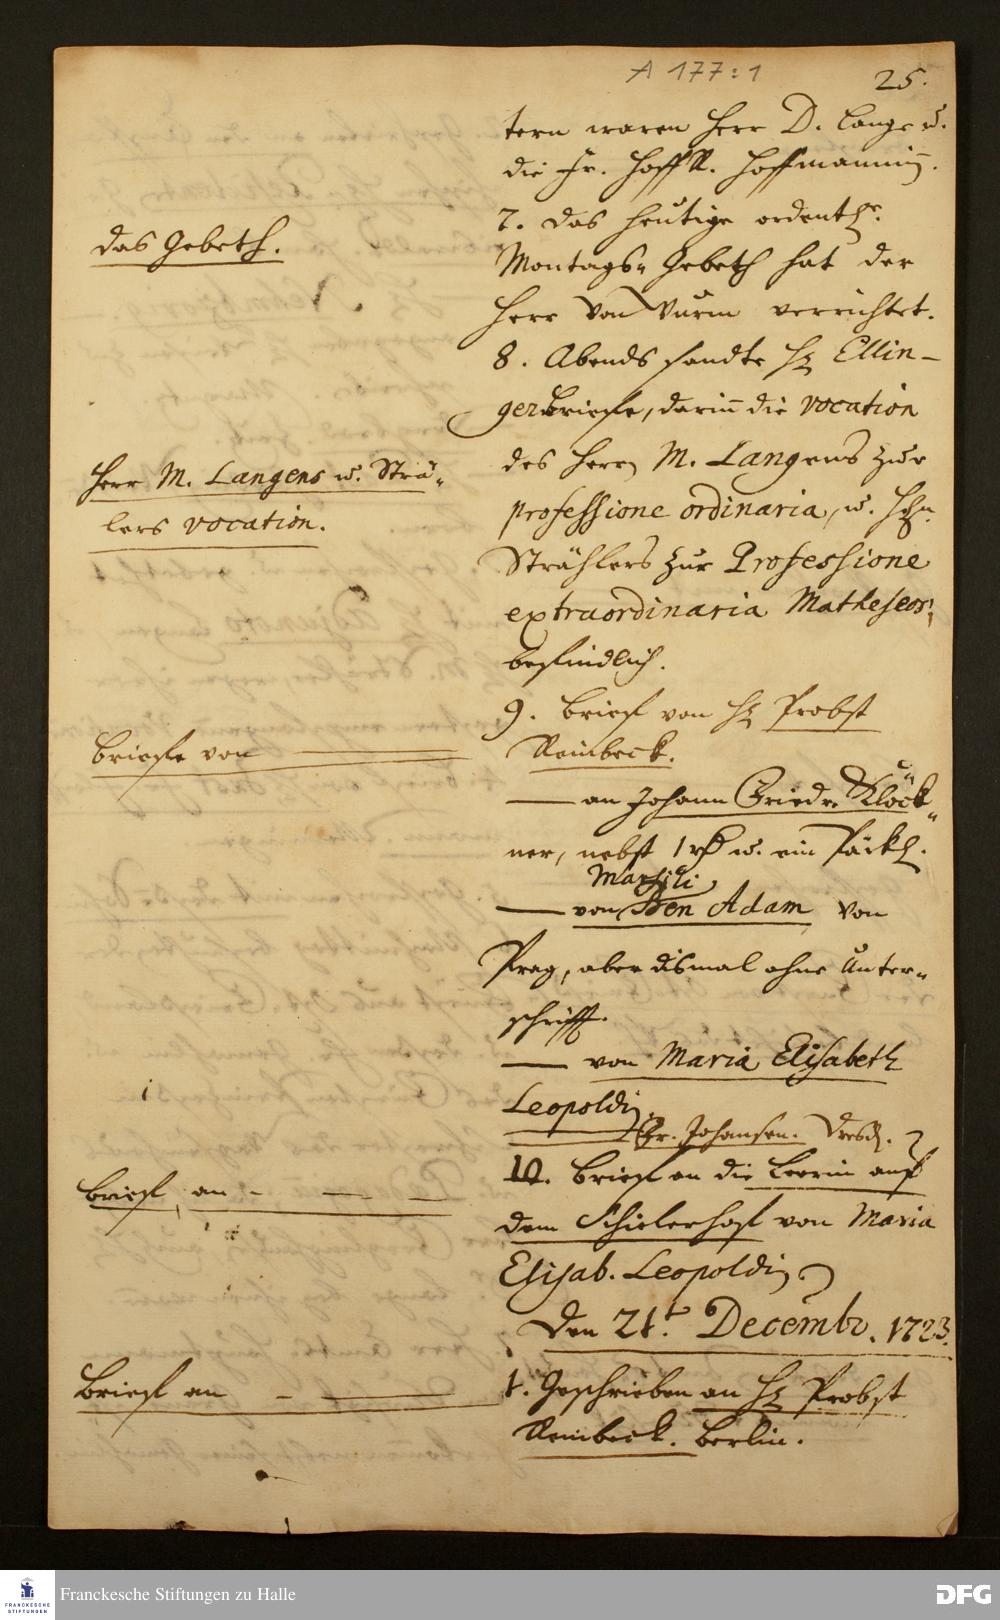 A 177:1
25.
tern waren Herr D. Lange u.
die Fr. HoffR. Hoffmannin.
7. Das heutige ordentl.
das Gebeth.
Montags-Gebeth hat der
Herr von Wurm verrichtet.
8. Abends sandte H. Ellin-
ger Briefe, darin die vocation
des Herrn M. Langens zur
Herr M. Langens u. Sträh-
lers vocation.
professione ordinaria, u. Hrn.
Strählers zur Professione
extraordinaria Matheseos,
befindlich.
9. Brief von H. Probst
Briefe von
Reinbeck.
— an Johann Friedr. Klöck-
ner, nebst 1 rh u. ein Päckl.
Marsili
— von Ben Adam von
Prag, aber dismal ohne Unter-
schrifft.
— von Maria Elisabeth
Leopoldin.
Fr. Johansen. Dresd.
10. Brief an die Leerin auf
Brief an — — —
dem Schielerhof von Maria
Elisab. Leopoldin
Den 21t. Decembr. 1723.
Brief an — —
1. Geschrieben an H. Probst
Reinbeck. Berlin.
FRANCKESCHE STIFTUNGEN
Franckesche Stiftungen zu Halle
DFG